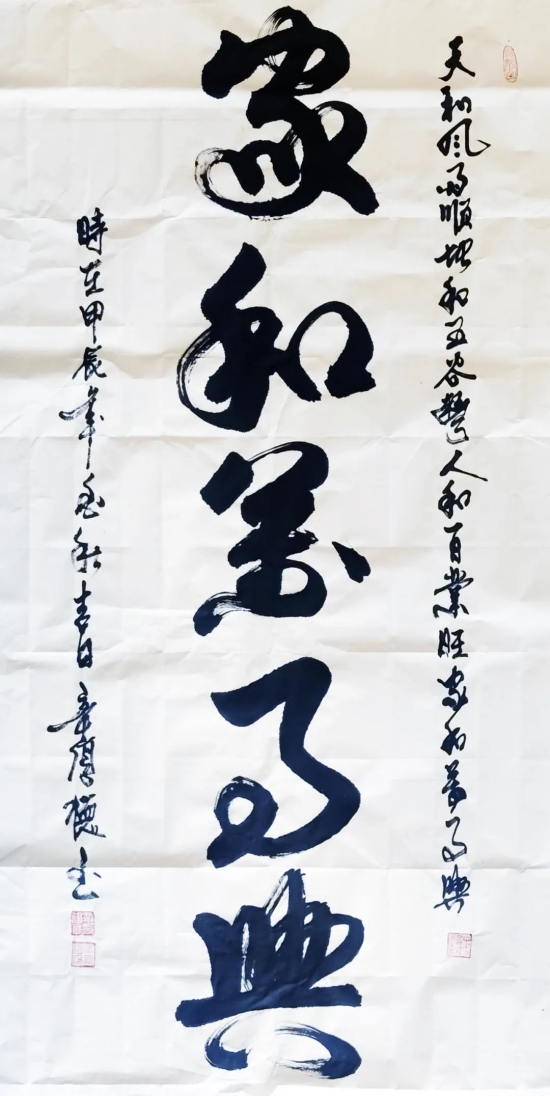 天和風雨順地和五谷豐人和百業旺家和萬事興
家和萬事興
時在甲辰年金秋吉日 書